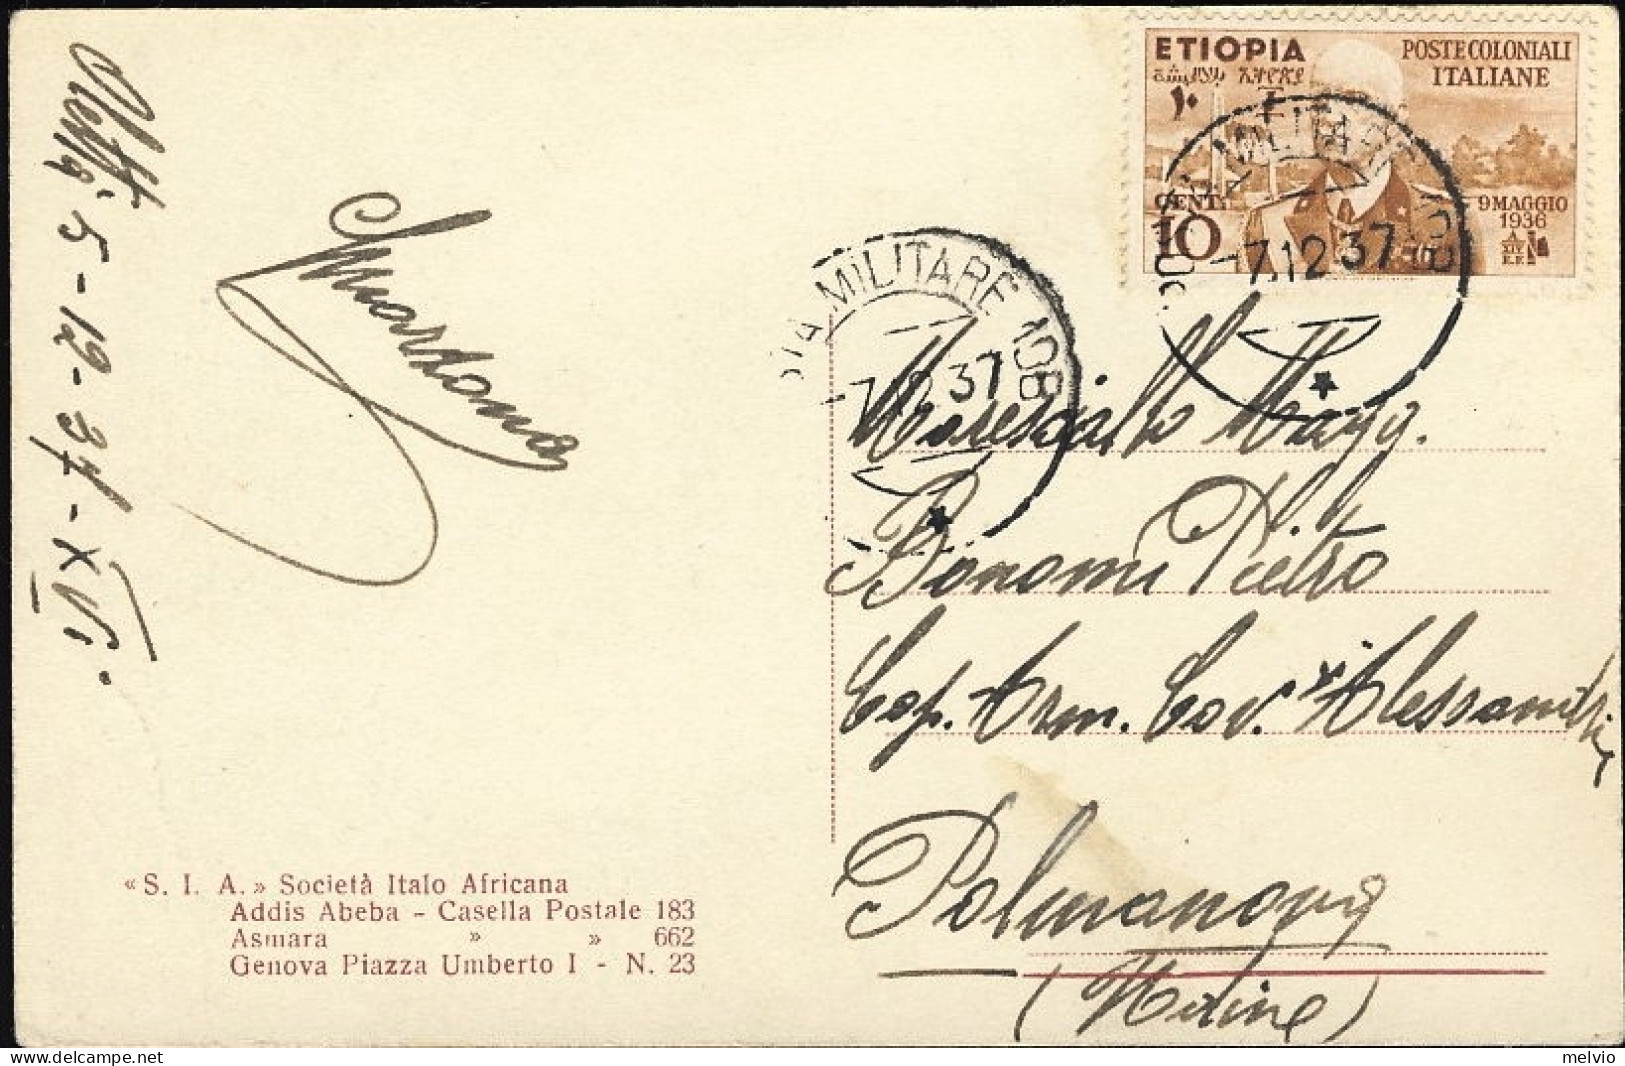 5-12-37-XVI°
ETIOPIA
POSTE COLONIALI
ITALIANE
CENT.
10
9 MAGGIO
1936
XIV
E.F.
MILITARE 108
-7.12 37
TA MILITARE 108
37
Maresciallo Magg.
Bonomi Pietro
Cap. Arm. Cav. "Alessandria"
Palmanova
(Udine)
«S. I. A.» Società Italo Africana
Addis Abeba - Casella Postale 183
Asmara » » 662
Genova Piazza Umberto I - N. 23
melvio